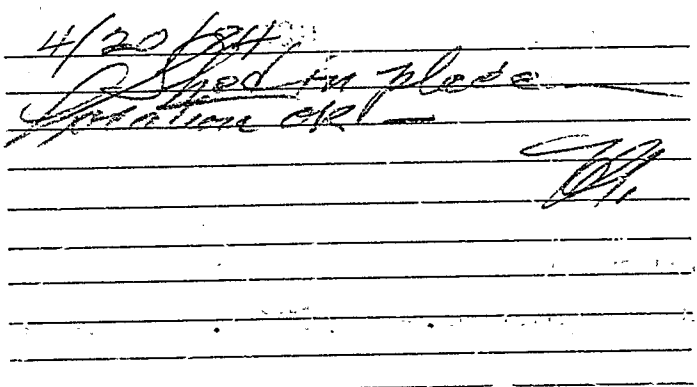 4/20/84
Shed in place
Location ok —